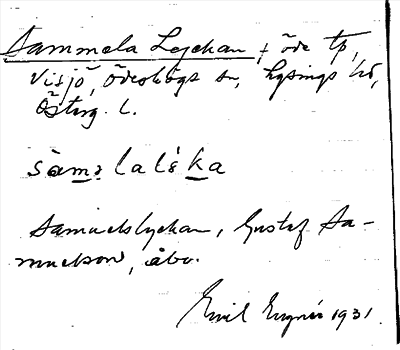 Sammela Lyckan, † öde tp,
Visjö, Ödeshögs sn, Lysings hd,
Österg. l.
sàmə laléka
Samuelslyckan, Gustaf Sa-
muelson, åbo.
Emil 1931.